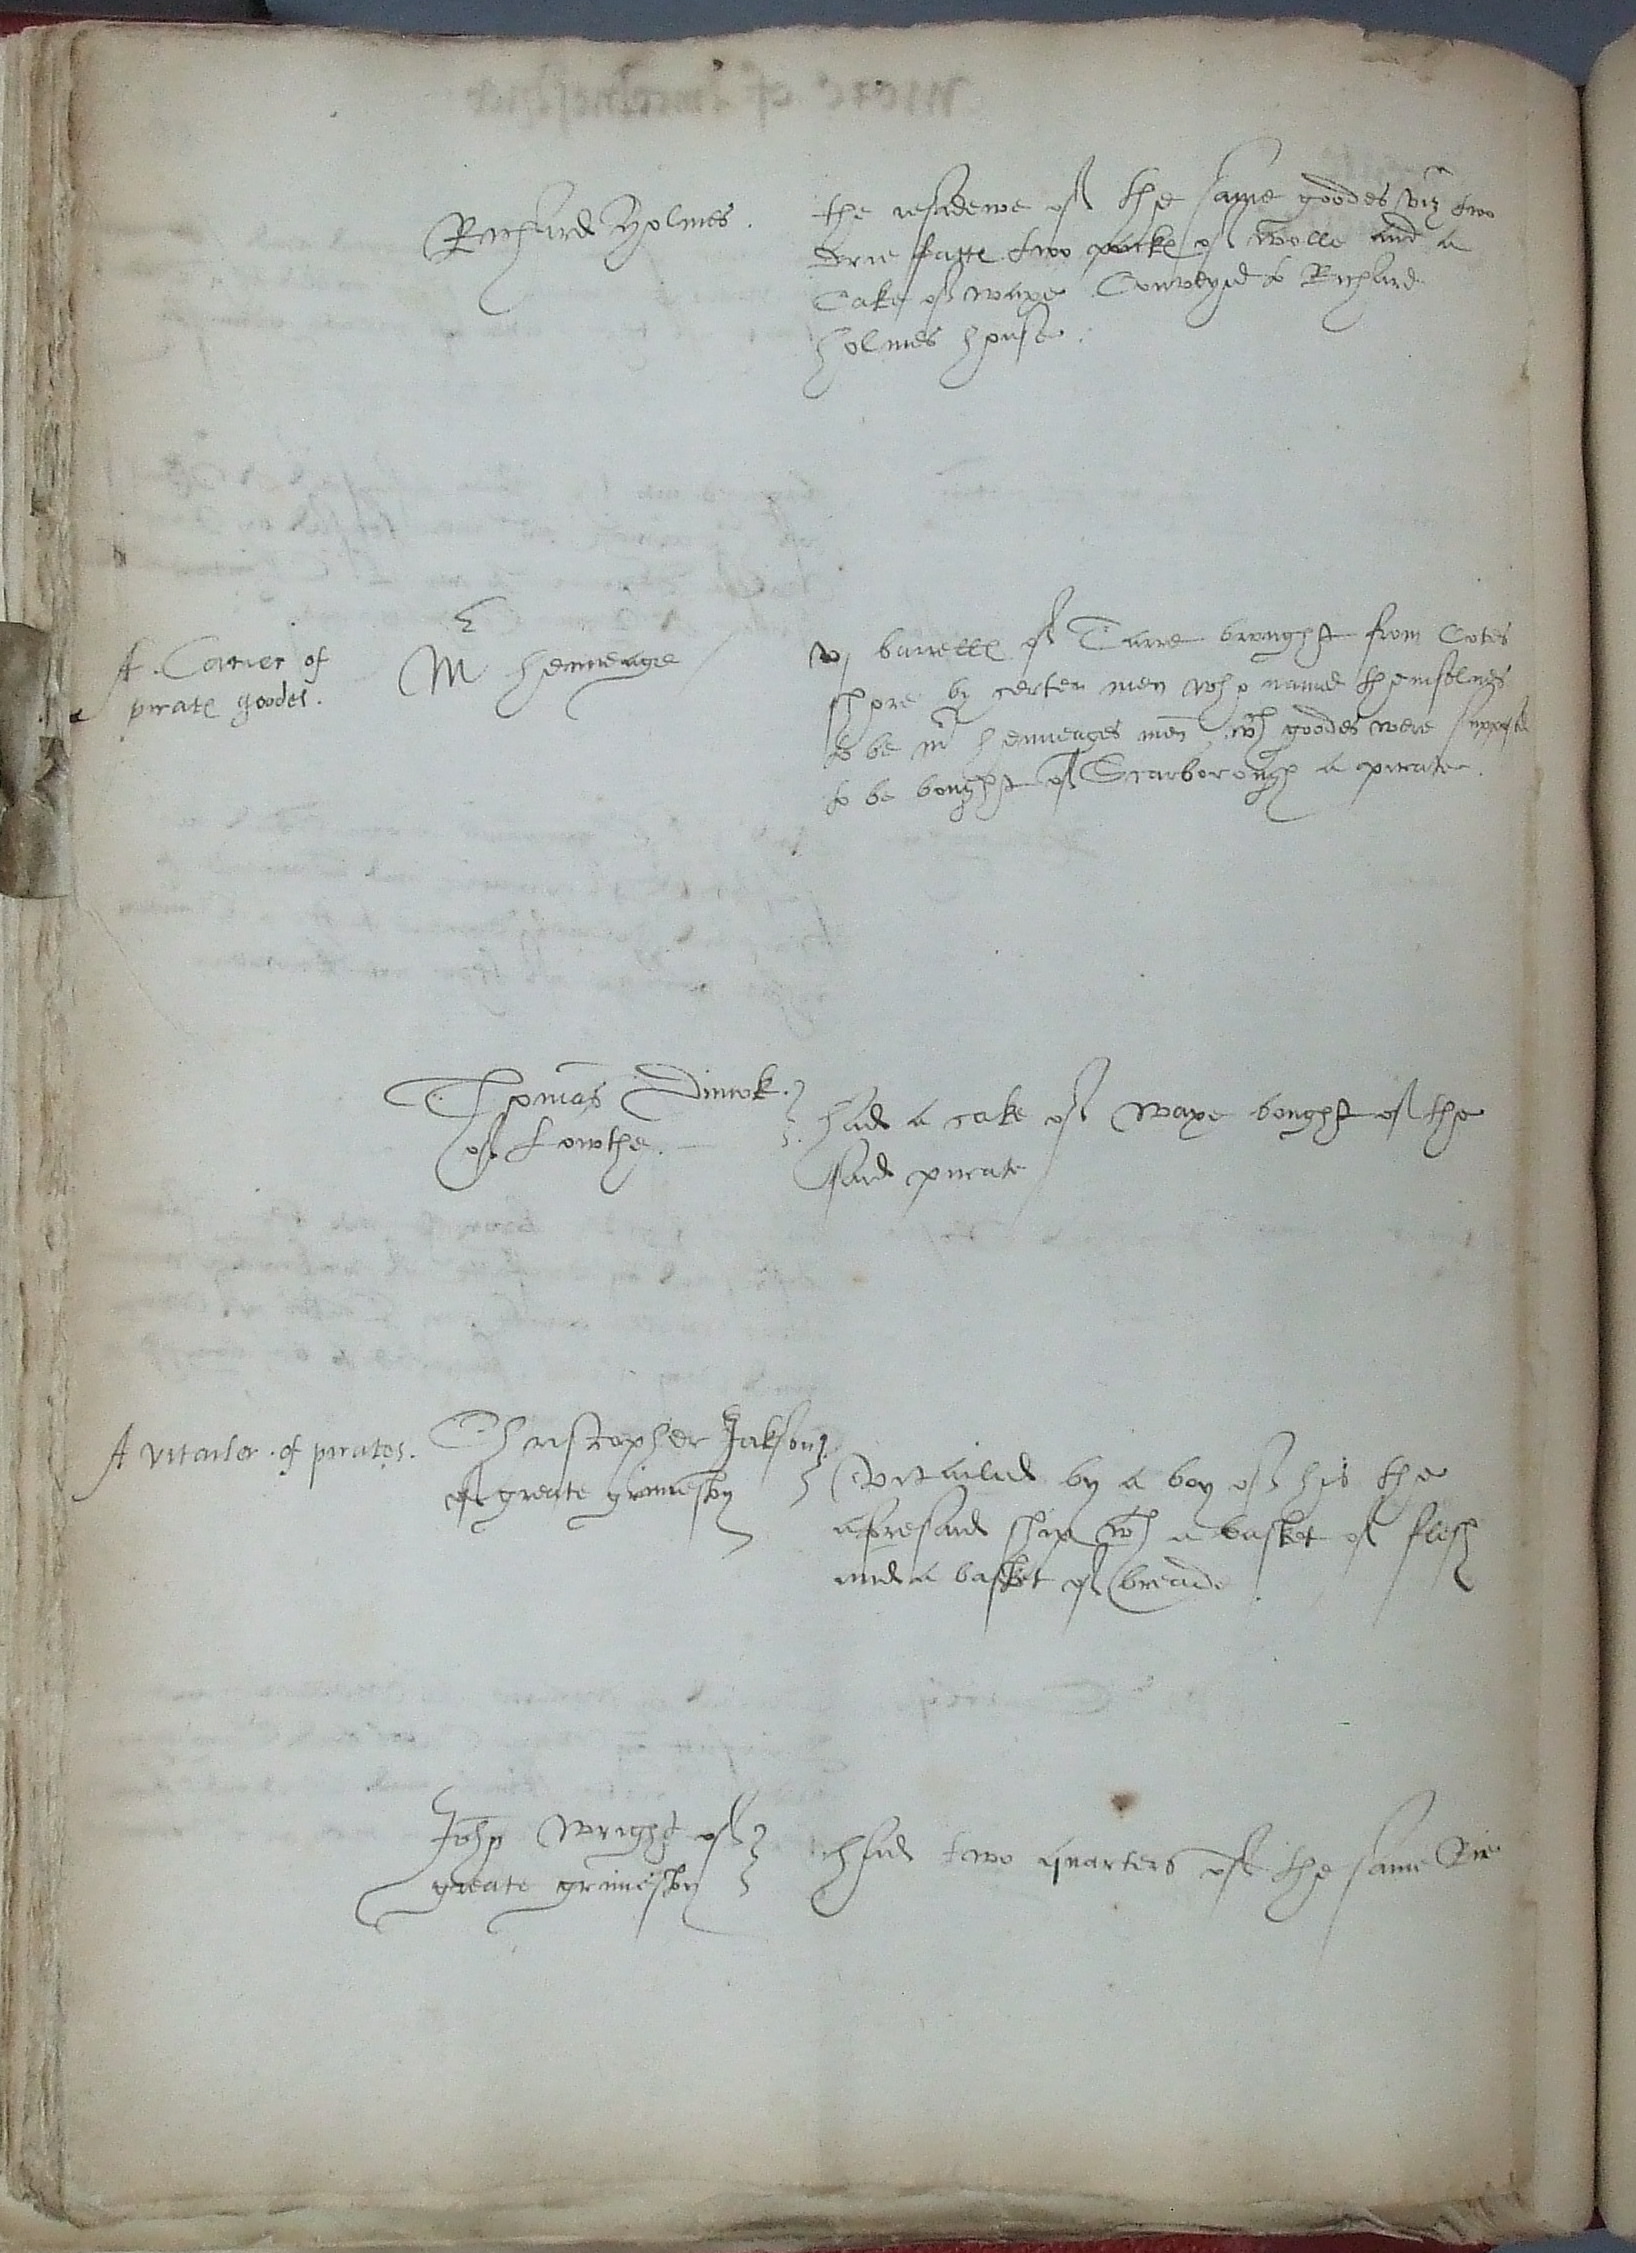 Richard Holmes.
the residewe of the same goodes viz two
drie fatte two packe of wolle and a
Cake of waxe Conveyed to Richard
holmes house.
A Carier of
pirate goodes.
Mr henneage
vj barrelle of Tarre brought from Cotes
shore by certen men who named themselves
to be mr henneages men wch goodes were supposed
to be bought of Scarborough a pirate.
Thomas Dimok
of Lowthe.
had a cake of waxe bought of the
said pirate
A vitailer of pirates.
Christopher Jakson
of greate grimesby
Vitailed by a boy of his the
aforesaid ship wth a basket of flesh
and a basket of breade
John Wright of
greate grimesby
had two quarters of the same Rie